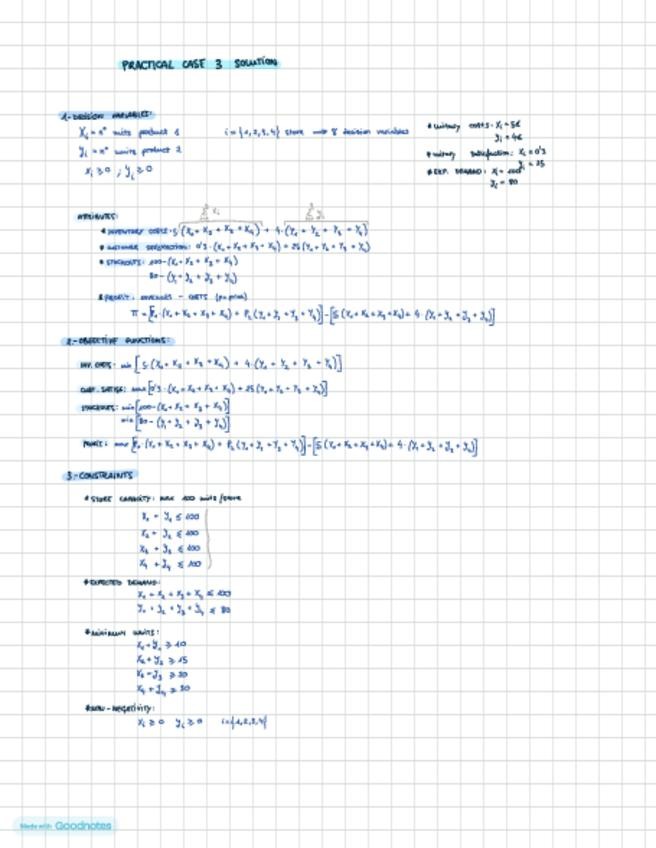 PRACTICAL CASE 3 SOLUTION
1-DECISION VARIABLES:
Xi = nº units product 1
i={1,2,3,4} store → 8 decision variables
yi = nº units product 2
xi ≥ 0 ; yi ≥ 0
* unitary costs: Xi = 5€
yi = 4€
* unitary satisfaction: Xi = 0'3
yi = 25
* EXP. DEMAND: Xi = 100
yi = 80
ATTRIBUTES:
* INVENTORY COSTS: 5·(X1 + X2 + X3 + X4) + 4·(Y1 + Y2 + Y3 + Y4)
* CUSTOMER SATISFACTION: 0'3·(X1+X2+X3+X4)+25(Y1+Y2+Y3+Y4)
* STOCKOUTS: 100-(X1+X2+X3+X4)
80-(Y1+Y2+Y3+Y4)
* PROFIT: REVENUES - COSTS
π = [P1·(X1+X2+X3+X4) + P2(Y1+Y2+Y3+Y4)]-[5(X1+X2+X3+X4)+4·(Y1+Y2+Y3+Y4)]
2-OBJECTIVE FUNCTIONS:
INV. COSTS: min [5·(X1+X2+X3+X4) + 4·(Y1+Y2+Y3+Y4)]
CUST. SATISF: max [0'3·(X1+X2+X3+X4)+25(Y1+Y2+Y3+Y4)]
STOCKOUTS: min[100-(X1+X2+X3+X4)]
min[80-(Y1+Y2+Y3+Y4)]
PROFIT: max [P1·(X1+X2+X3+X4) + P2(Y1+Y2+Y3+Y4)]-[5(X1+X2+X3+X4)+4·(Y1+Y2+Y3+Y4)]
3-CONSTRAINTS
* STORE CAPACITY: MAX 100 units/store
X1 + y1 ≤ 100
X2 + y2 ≤ 100
X3 + y3 ≤ 100
X4 + y4 ≤ 100
* EXPECTED DEMAND:
X1 + X2 + X3 + X4 ≤ 100
Y1 + Y2 + Y3 + Y4 ≤ 80
* MINIMUM UNITS:
X1+y1 ≥ 10
X2+y2 ≥ 15
X3+y3 ≥ 20
X4+y4 ≥ 30
* NON-NEGATIVITY:
Xi ≥ 0 yi ≥ 0 i={1,2,3,4}
Made with Goodnotes